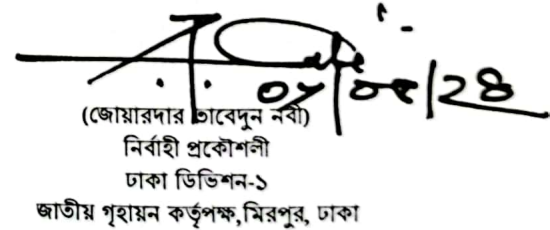 (জোয়ারদার তাবেদুন নবী)
নির্বাহী প্রকৌশলী
ঢাকা ডিভিশন-১
জাতীয় গৃহায়ন কর্তৃপক্ষ,মিরপুর, ঢাকা